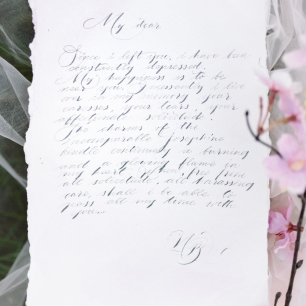 My dear,
Since I left you, I have been
constantly depressed.
My happiness is to be
near you. Incessantly I live
over in my memory your
caresses, your tears, your
affectionate solicitude.
The charms of the
incomparable Josephine
kindle continually a burning
and a glowing flame in
my heart. When, free from
all solicitude, all harassing
care, shall I be able to
pass all my time with
you